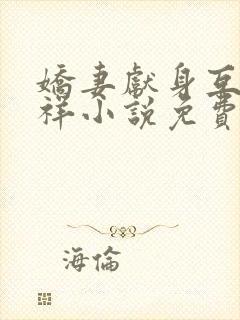 嬌妻獻身互
祥小說免費
海倫